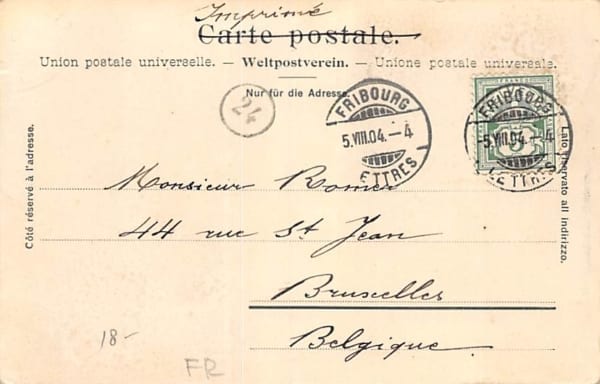 Imprimé
Carte postale.
Union postale universelle. – Weltpostverein. – Unione postale universale.
Nur für die Adresse.
24
FRIBOURG
5.VIII.04.–4
LETTRES
FRIBOURG
5.VIII.04.–4
LETTRES
5
Côté réservé à l'adresse.
Lato riservato all indirizzo.
Monsieur Romer
44 rue St Jean
Bruxelles
Belgique.
18-
FR